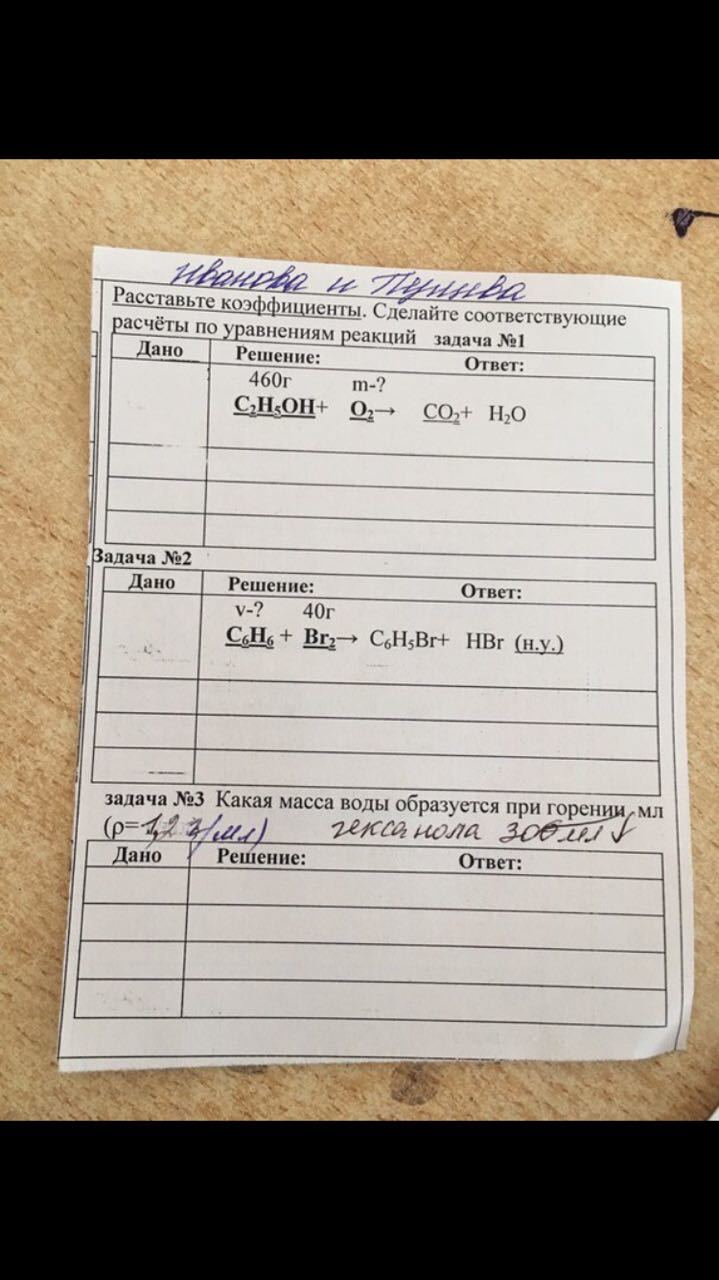 Иванова и
Расставьте коэффициенты. Сделайте соответствующие
расчёты по уравнениям реакций задача №1
Дано Решение: Ответ:
460г m-?
C₂H₅OH+ O₂→ CO₂+ H₂O
Задача №2
Дано Решение: Ответ:
v-? 40г
C₆H₆ + Br₂→ C₆H₅Br+ HBr (н.у.)
задача №3 Какая масса воды образуется при горении мл
(ρ=1,2 г/мл) гексанола 300 мл
Дано Решение: Ответ: